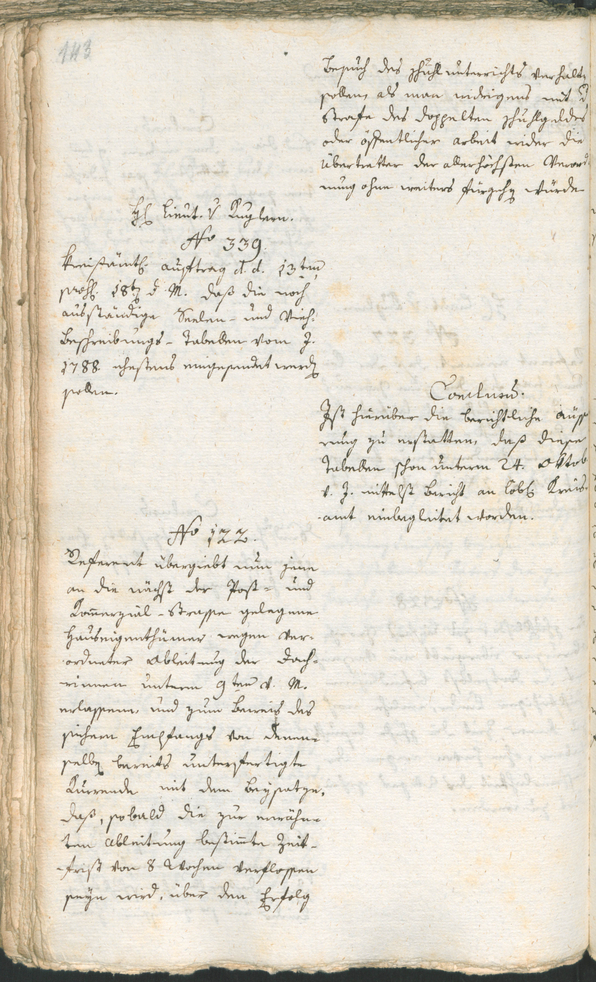 143
Besuch des Schul unterrichts verhalten
sollen, als man widrigens mit d
Strafe des doppelten Schulgeldes
oder öffentlicher arbeit wider die
übertretter der allerhöchsten Verord
nung ohne weiters fürgehen würde
H. Lieut. v Kuglern.
No 339.
Kreisämtl. auftrag d. d. 13ten
praes. 18ten d. M. daß die noch
ausständige Seelen- und Vieh-
beschreibungs-Tabellen vom J.
1788 ehestens eingesendet werden
sollen.
Conclusum.
Ist hierüber die berichtliche äusse
rung zu erstatten, daß diese
Tabellen schon unterm 24. Oktob
v. J. mittelst Bericht an löbl. Kreis-
amt einbegleitet worden.
No 122.
Referent übergiebt nun jene
an die nächst der Post- und
Kommerzial-Strasse gelegene
Hauseigenthümer wegen ver-
ordneter Ableitung der Dach-
rinnen unterm 9ten v. M.
erlassene, und zum Beweis des
sichern Empfangs von denen-
selben bereits unterfertigte
Kurrende mit dem Beysatze,
daß, sobald die zur erwähn-
ten Ableitung bestimmte Zeit-
frist von 8 Wochen verflossen
seyn wird, über den Erfolg